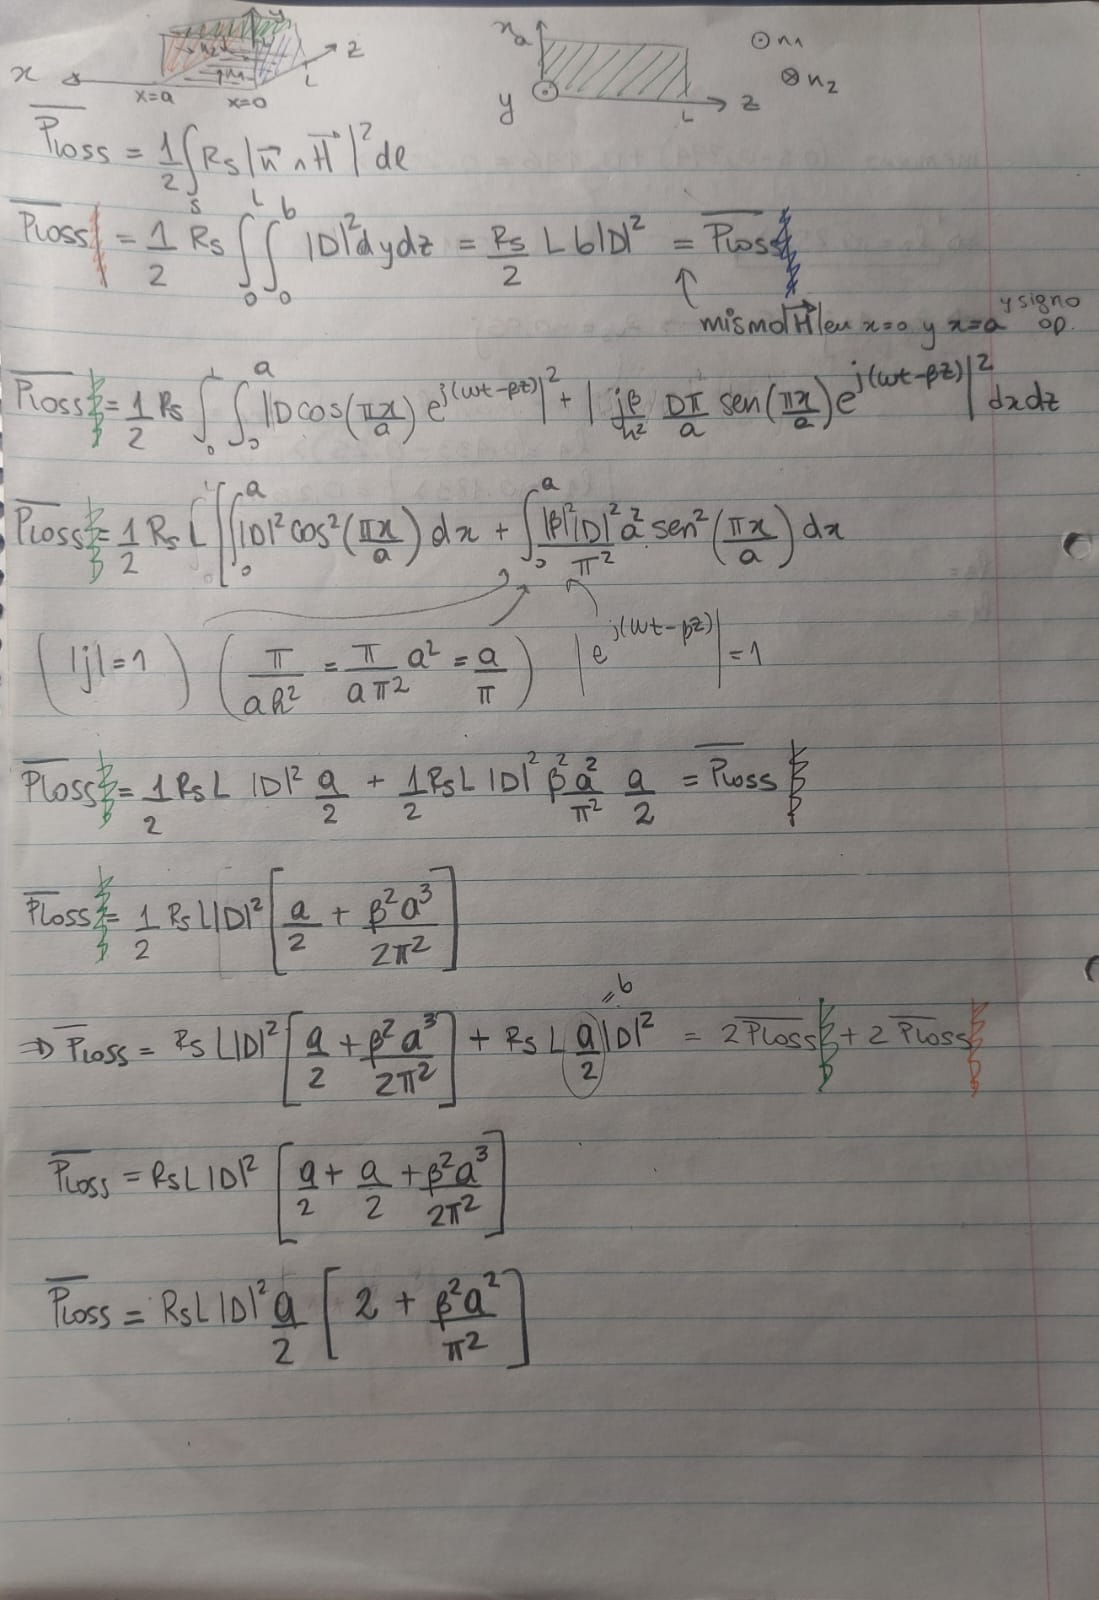 x x=a x=0 n₂ n₁ y L z
x a y L z ⊙ n₁
⊗ n₂
P̅loss = 1/2 ∫_S Rs |n⃗ ∧ H⃗|² dl
P̅loss = 1/2 Rs ∫_0^L ∫_0^b |D|² dy dz = Rs/2 L b |D|² = P̅loss
↑ mismo |H⃗| en x=0 y x=a y signo op.
P̅loss = 1/2 Rs ∫_0^L ∫_0^a |D cos(πx/a) e^{j(ωt-βz)}|² + |jβ/h² Dπ/a sen(πx/a) e^{j(ωt-βz)}|² dx dz
P̅loss = 1/2 Rs L [∫_0^a |D|² cos²(πx/a) dx + ∫_0^a |β|²|D|² a²/π² sen²(πx/a) dx
(|j|=1) (π/(ah²) = π/(aπ²) a² = a/π) |e^{j(ωt-βz)}| = 1
P̅loss = 1/2 Rs L |D|² a/2 + 1/2 Rs L |D|² β² a²/π² a/2 = P̅loss
P̅loss = 1/2 Rs L |D|² [a/2 + β²a³/2π²]
=b
⇒ P̅loss = Rs L |D|² [a/2 + β²a³/2π²] + Rs L a/2 |D|² = 2 P̅loss + 2 P̅loss
P̅loss = Rs L |D|² [a/2 + a/2 + β²a³/2π²]
P̅loss = Rs L |D|² a/2 [2 + β²a²/π²]